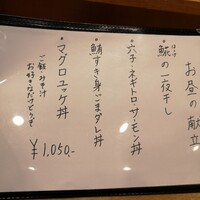 お昼の献立
・鯱の一夜干し
・穴子ネギトロ・サーモン丼
・鮪すき身ごまダレ丼
・マグロユッケ丼
ご飯みそ汁
お好きなだけどうぞ
¥1,050-